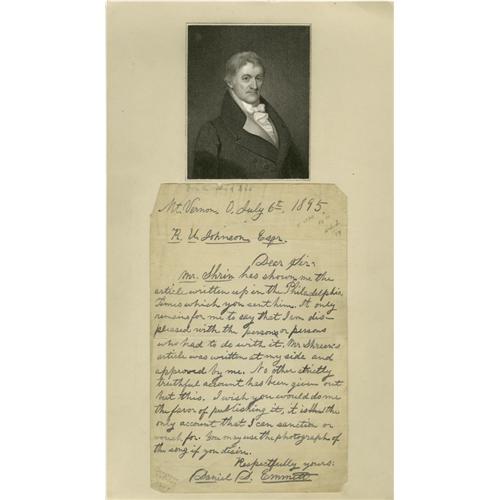 Mt. Vernon, O, July 6th, 1895
R. U. Johnson, Esqr.
Dear Sir:-
Mr. Shrin has shown me the
article written up in the Philadelphia
Times which you sent him. It only
remains for me to say that I am dis-
pleased with the person, or persons
who had to do with it. Mr Shreer's
article was written at my side and
approved by me. No other strictly
truthful account has been given out
but this. I wish you would do me
the favor of publishing it, it is the
only account that I can sanction or
vouch for. You may use the photograph of
the song if you desire.
Respectfully yours:
Daniel D. Emmett